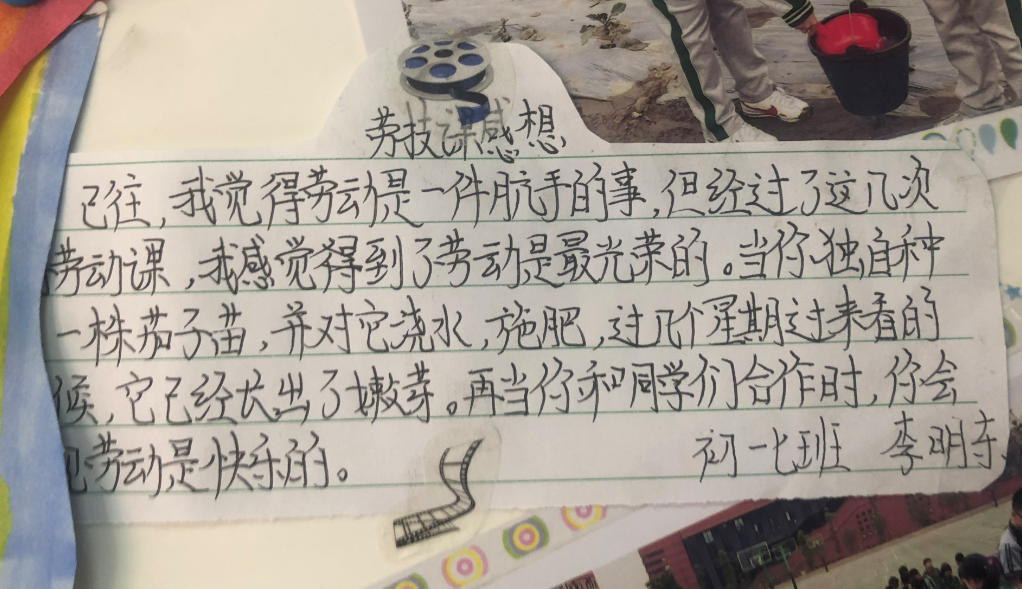 劳技课感想
已往，我觉得劳动是一件脏手的事，但经过了这几次
劳动课，我感觉得到了劳动是最光荣的。当你独自种
一株茄子苗，并对它浇水，施肥，过几个星期过来看的
候，它已经长出了嫩芽。再当你和同学们合作时，你会
现劳动是快乐的。
初一七班 李明